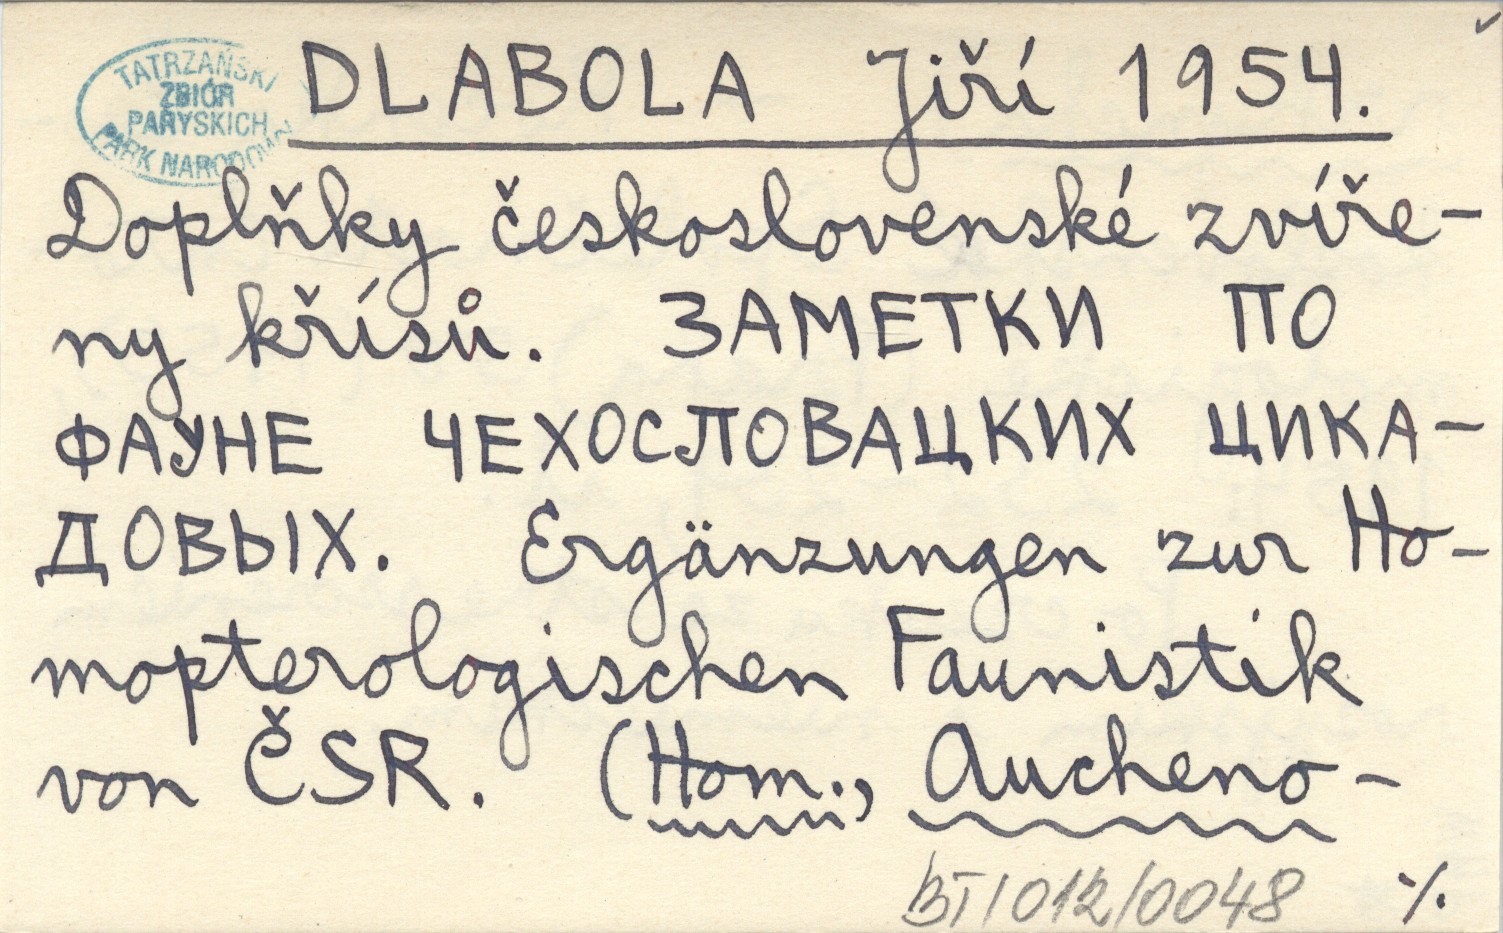 TATRZAŃSKI
ZBIÓR
PARYSKICH
PARK NARODOWY
DLABOLA Jiří 1954.
Doplňky československé zvíře-
ny křísů. ЗАМЕТКИ ПО
ФАУНЕ ЧЕХОСЛОВАЦКИХ ЦИКА-
ДОВЫХ. Ergänzungen zur Ho-
mopterologischen Faunistik
von ČSR. (Hom., Aucheno-
BT/012/0048 ·/.